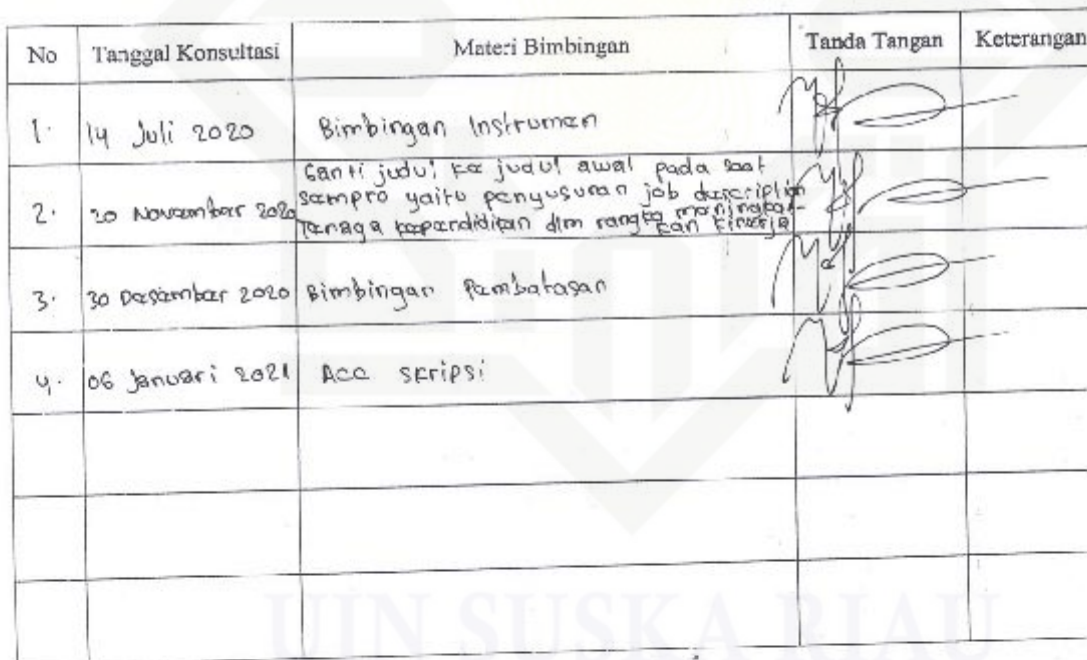 No Tanggal Konsultasi Materi Bimbingan Tanda Tangan Keterangan
1. 14 Juli 2020 Bimbingan Instrumen
Ganti judul ke judul awal pada saat
2. 20 November 2020 sempro yaitu penyusunan job description
Tenaga kependidikan dlm rangka meningkat-
kan kinerja
3. 30 Desember 2020 Bimbingan Pembatasan
4. 06 Januari 2021 Acc skripsi
UIN SUSKA RIAU